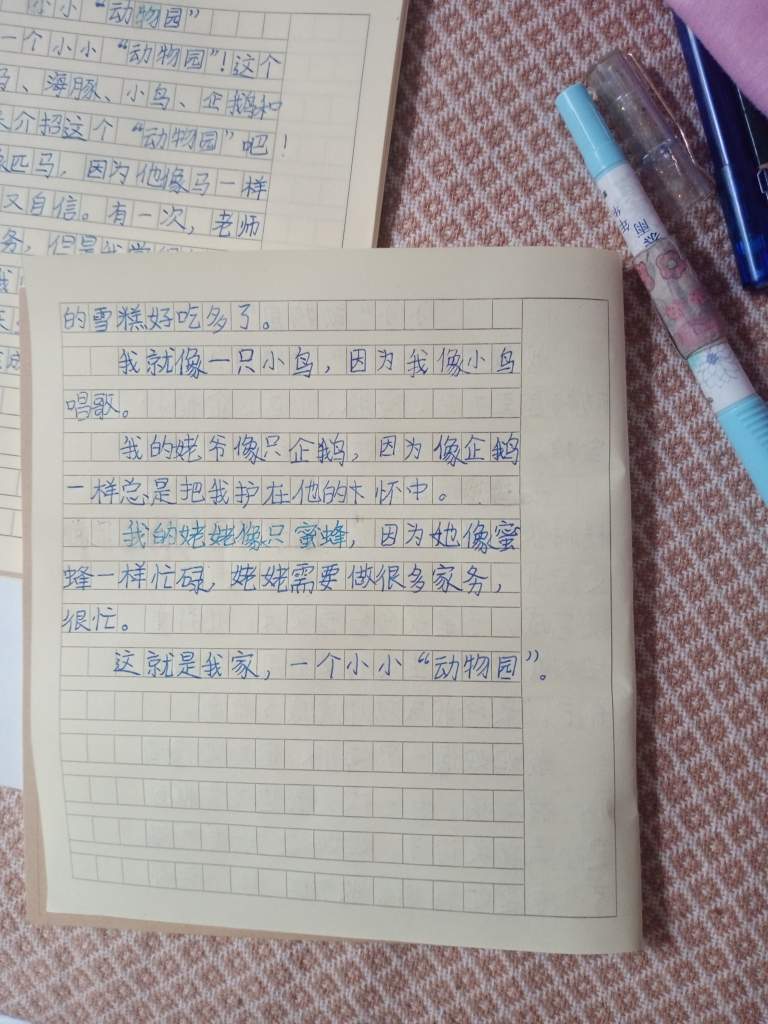 小小“动物园”
一个小小“动物园”!这个
马、海豚、小鸟、企鹅和
介招这个“动物园”吧!
匹马,因为他像马一样
又自信。有一次,老师
务,但是我觉得
的雪糕好吃多了。
我就像一只小鸟,因为我像小鸟
唱歌。
我的姥爷像只企鹅,因为像企鹅
一样总是把我护在他的怀中。
我的姥姥像只蜜蜂,因为她像蜜
蜂一样忙碌,姥姥需要做很多家务,
很忙。
这就是我家,一个小小“动物园”。